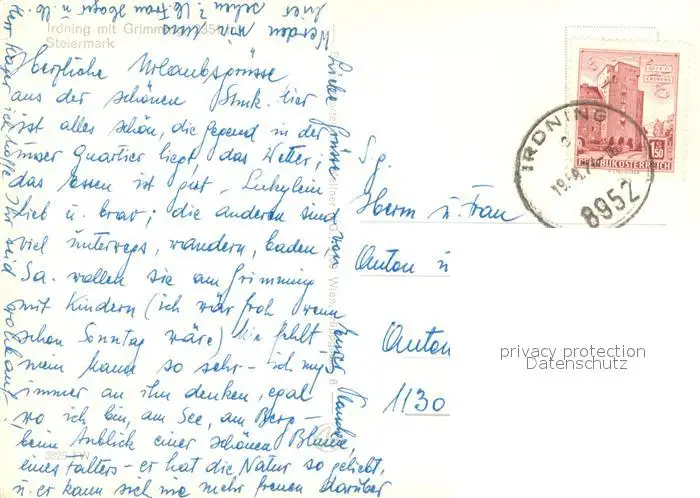 Irdning mit Grimming 2351
Steiermark
Herzliche Urlaubsgrüsse
aus der schönen Stmk. hier
ist alles schön, die Gegend in der
unser Quartier liegt, das Wetter,
das Essen ist gut,
lieb u. brav; die anderen sind
viel unterwegs, wandern, baden,
Sa. wollen sie am Grimming
mit Kindern (ich wär froh wenn
schon Sonntag wäre) hin fehlt
mein Mann so sehr - ich muß
immer an ihn denken, egal
wo ich bin, am See, am Berg -
beim Anblick einer schönen Blume,
eines Falters - er hat die Natur so geliebt,
u. er kann sich nie mehr freuen darüber
Werden wir uns
hier sehen? Lb. Frau u. lb.
Herr ich hoffe Ihr seid wohlauf
Liebe Grüsse von
3825 FW
S.g.
Herrn u. Frau
Anton u
Anton
1130
IRDNING
8952
REPUBLIK ÖSTERREICH
S 1.50
privacy protection
Datenschutz